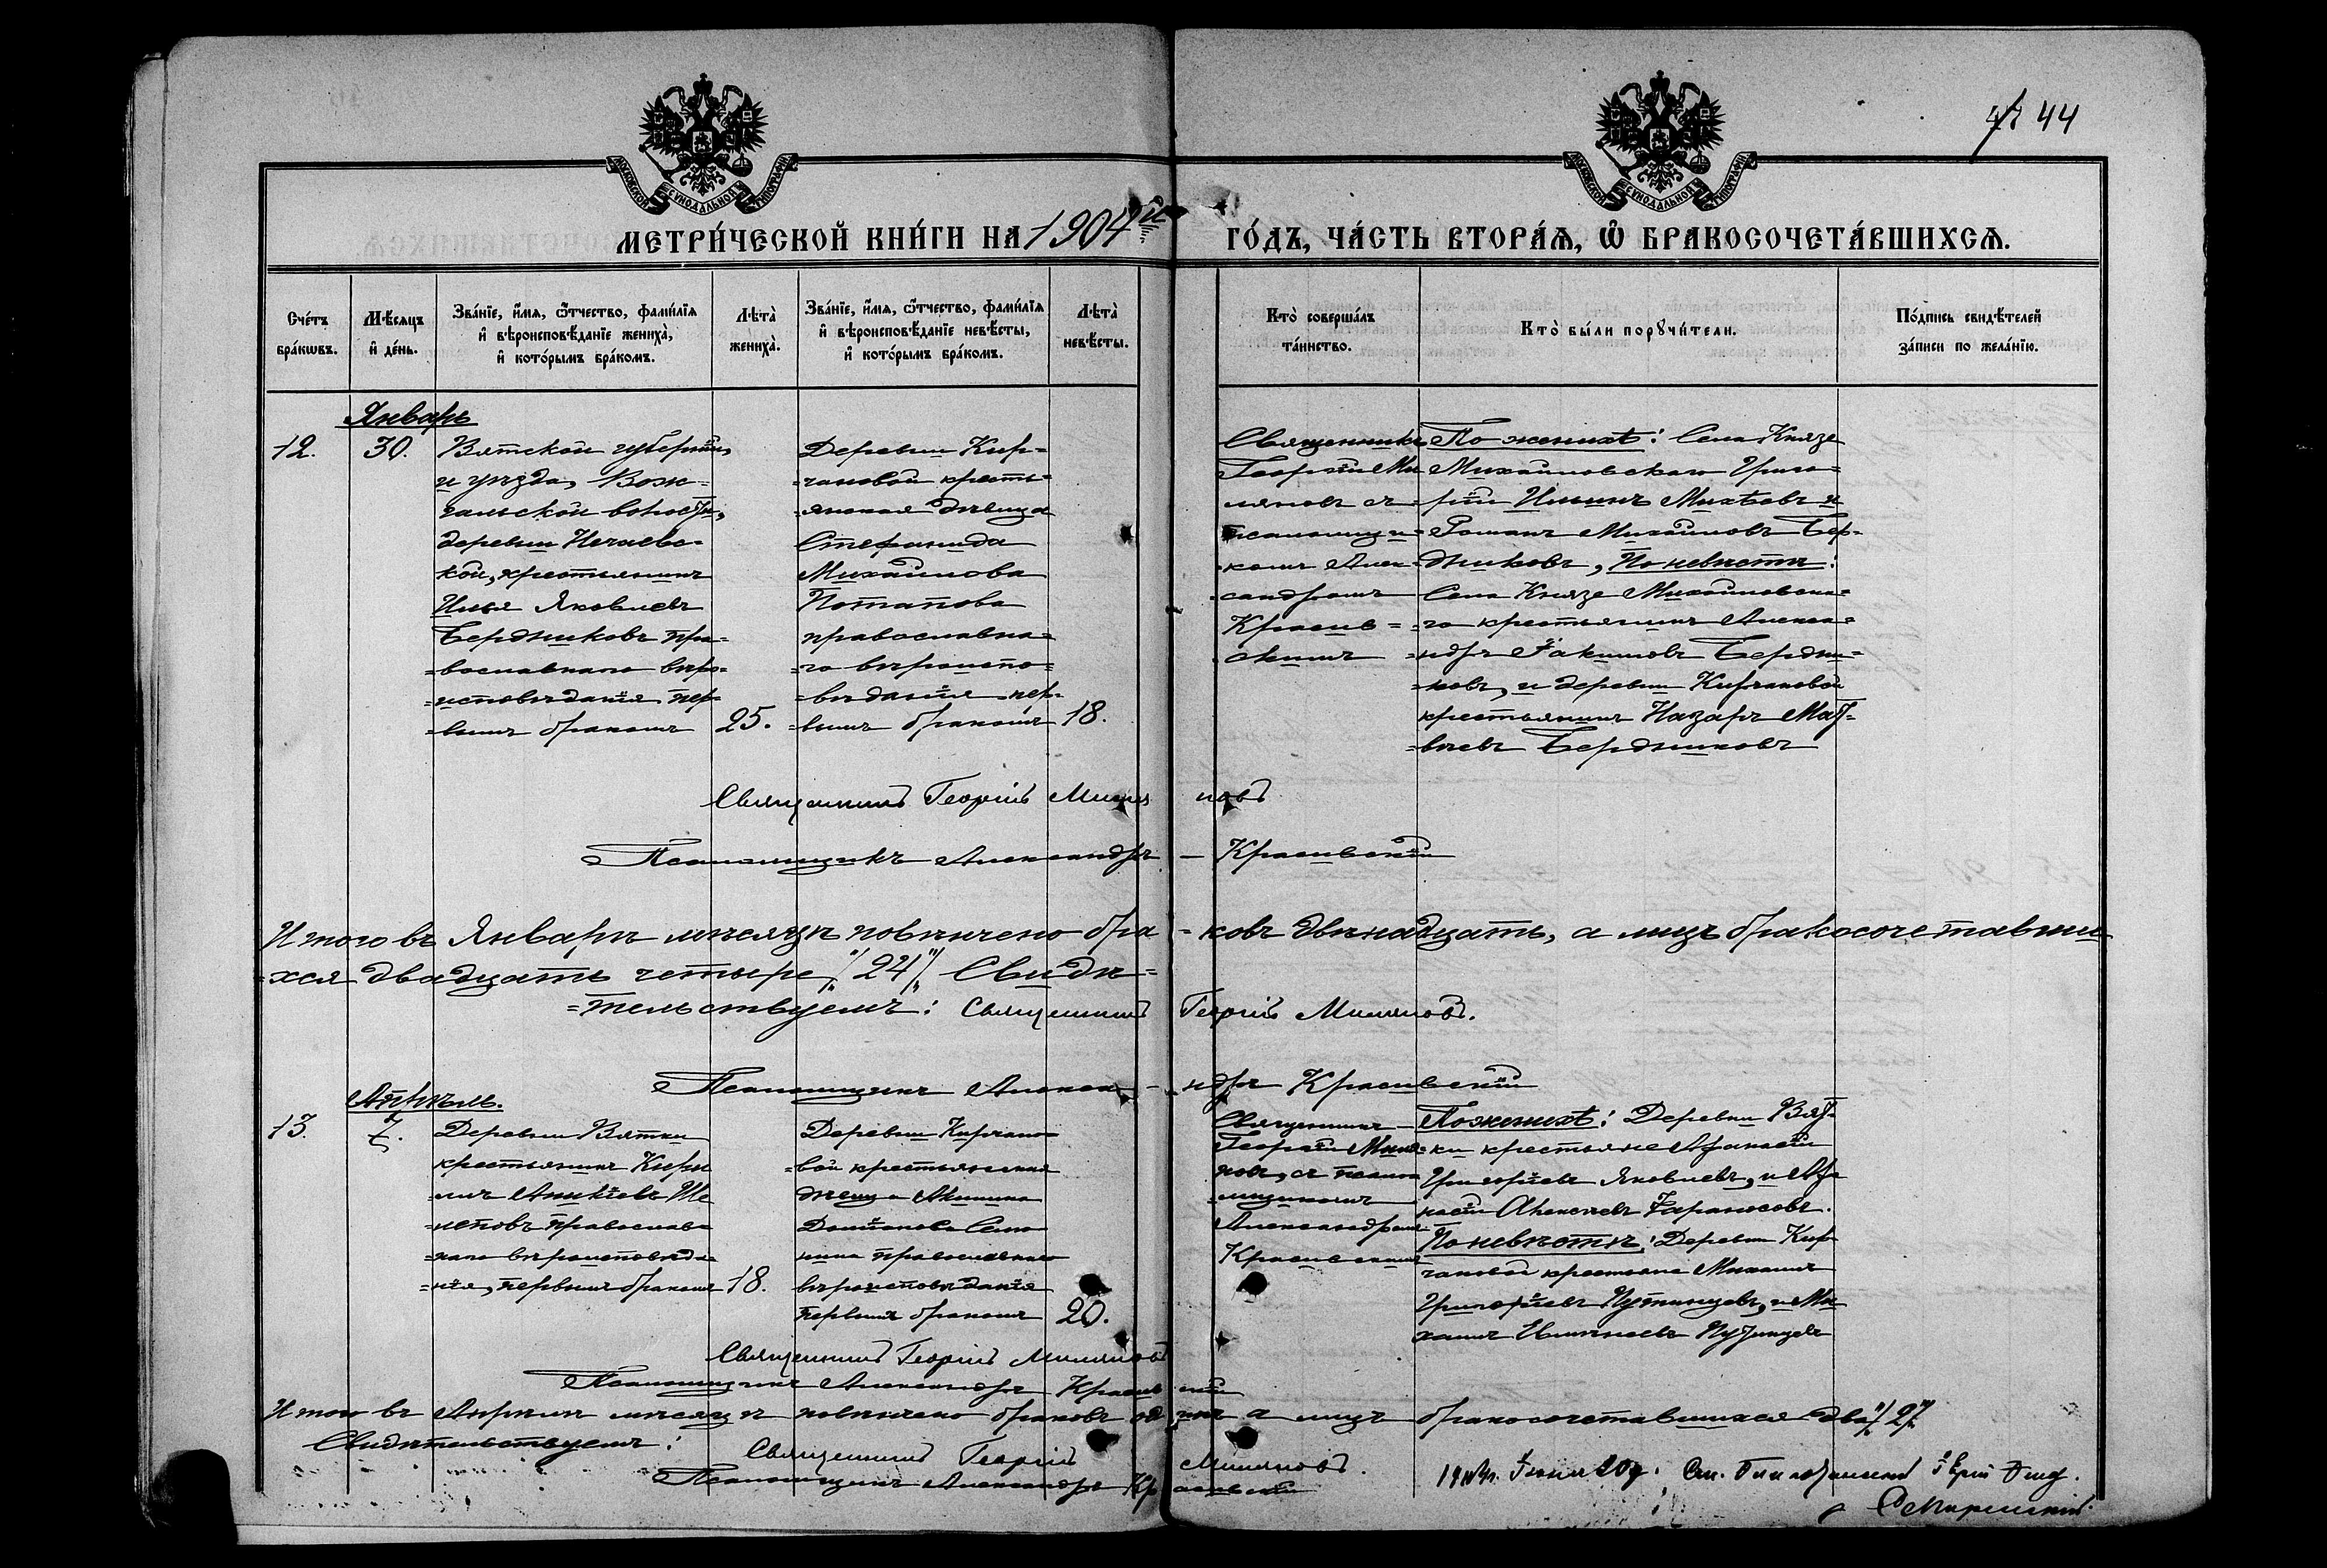 47 44
МОСКОВСКОЙ СѴНОДАЛЬНОЙ ТИПОГРАФІИ
МОСКОВСКОЙ СѴНОДАЛЬНОЙ ТИПОГРАФІИ
МЕТРИ́ЧЕСКОЙ КНИ́ГИ НА 1904й ГО́ДЪ, ЧА́СТЬ ВТОРА́Я, Ѽ БРАКОСОЧЕТА́ВШИХСѦ.
Сче́тъ бра́кωвъ.
Мѣ́сѧцъ и҆ де́нь.
Зва́нїе, и҆́мѧ, ѻ҆́тчество, фами́лїѧ
и҆ вѣроисповѣ́данїе жениха̀,
и҆ кото́рымъ бра́комъ.
Лѣта̀ жениха̀.
Зва́нїе, и҆́мѧ, ѻ҆́тчество, фами́лїѧ
и҆ вѣроисповѣ́данїе невѣ́сты,
и҆ кото́рымъ бра́комъ.
Лѣта̀ невѣ́сты.
Кто̀ соверша́лъ та́инство.
Кто̀ бы́ли порꙋчи́тели.
По́дпись свидѣ́телей
за́писи по жела́нїю.
Январь
12.
30.
Вятской губерніи
и уѣзда, Вож-
гальской волости,
деревни Нечаевс-
кой, крестьянинъ
Илья Яковлевъ
Бердниковъ пра-
=вославнаго вѣро-
=исповѣданія пер-
=вымъ бракомъ
25.
Деревни Кир=
=чановой кресть=
=янская дѣвица
Стефанида
Михайлова
Потапова
православна=
=го вѣроиспо=
=вѣданія пер-
=вымъ бракомъ
18.
Священникъ
Георгій Ми
ляновъ съ
псаломщи=
=комъ Алек-
сандромъ
Красив=
скимъ
По женихѣ: Села Князе
Михайловскаго Григо=
=рій Ильинъ Михѣевъ и
=Романъ Михайловъ Бер=
дниковъ, По невѣстѣ:
Села Князе Михайловска=
=го крестьянинъ Алекса=
=ндръ Іакимовъ Бердни=
=ковъ, и деревни Кирчановой
крестьянинъ Назаръ Мат=
=вѣевъ Бердниковъ
Священникъ Георгій Миляновъ
Псаломщикъ Александръ - Красивскій
Итого въ Январѣ мѣсяцѣ повѣнчено бра=ковъ двѣнадцать, а лицъ бракосочетавши
=хся двадцать четыре /24/ Свидѣ=
=тельствуемъ: Священникъ Георгій Миляновъ.
Псаломщикъ Алекса-ндръ Красивскій
Апрѣль.
13.
7.
Деревни Вятки
крестьянинъ Кири
=ллъ Аникіевъ
православ=
=наго вѣроисповѣда=
=нія, первымъ бракомъ
18.
Деревни Кирчано=
=вой крестьянская
дѣвица Акилина
православнаго
вѣроисповѣданія
первымъ бракомъ
20.
Священникъ
Георгій Миля=
новъ, съ псалом
=щикомъ
Александромъ
Красивскимъ
По женихѣ: Деревни Вят=
=ки крестьяне Афанасій
Григорьевъ Яковлевъ, и Афа
насій Алексѣевъ
По невѣстѣ: Деревни Кир
чановой крестьяне Михаилъ
Григорьевъ Путинцевъ, и Ми
хаилъ Путинцевъ
Священникъ Георгій Миляновъ
Псаломщикъ Александръ Красивскій
Итого въ Апрѣлѣ мѣсяцѣ повѣнчено браковъ одинъ а лицъ бракосочетавшихся два /2/
Свидѣтельствуемъ:
Священникъ Георгій Миляновъ.
Псаломщикъ Александръ Красивскій
Іюня 20 д.